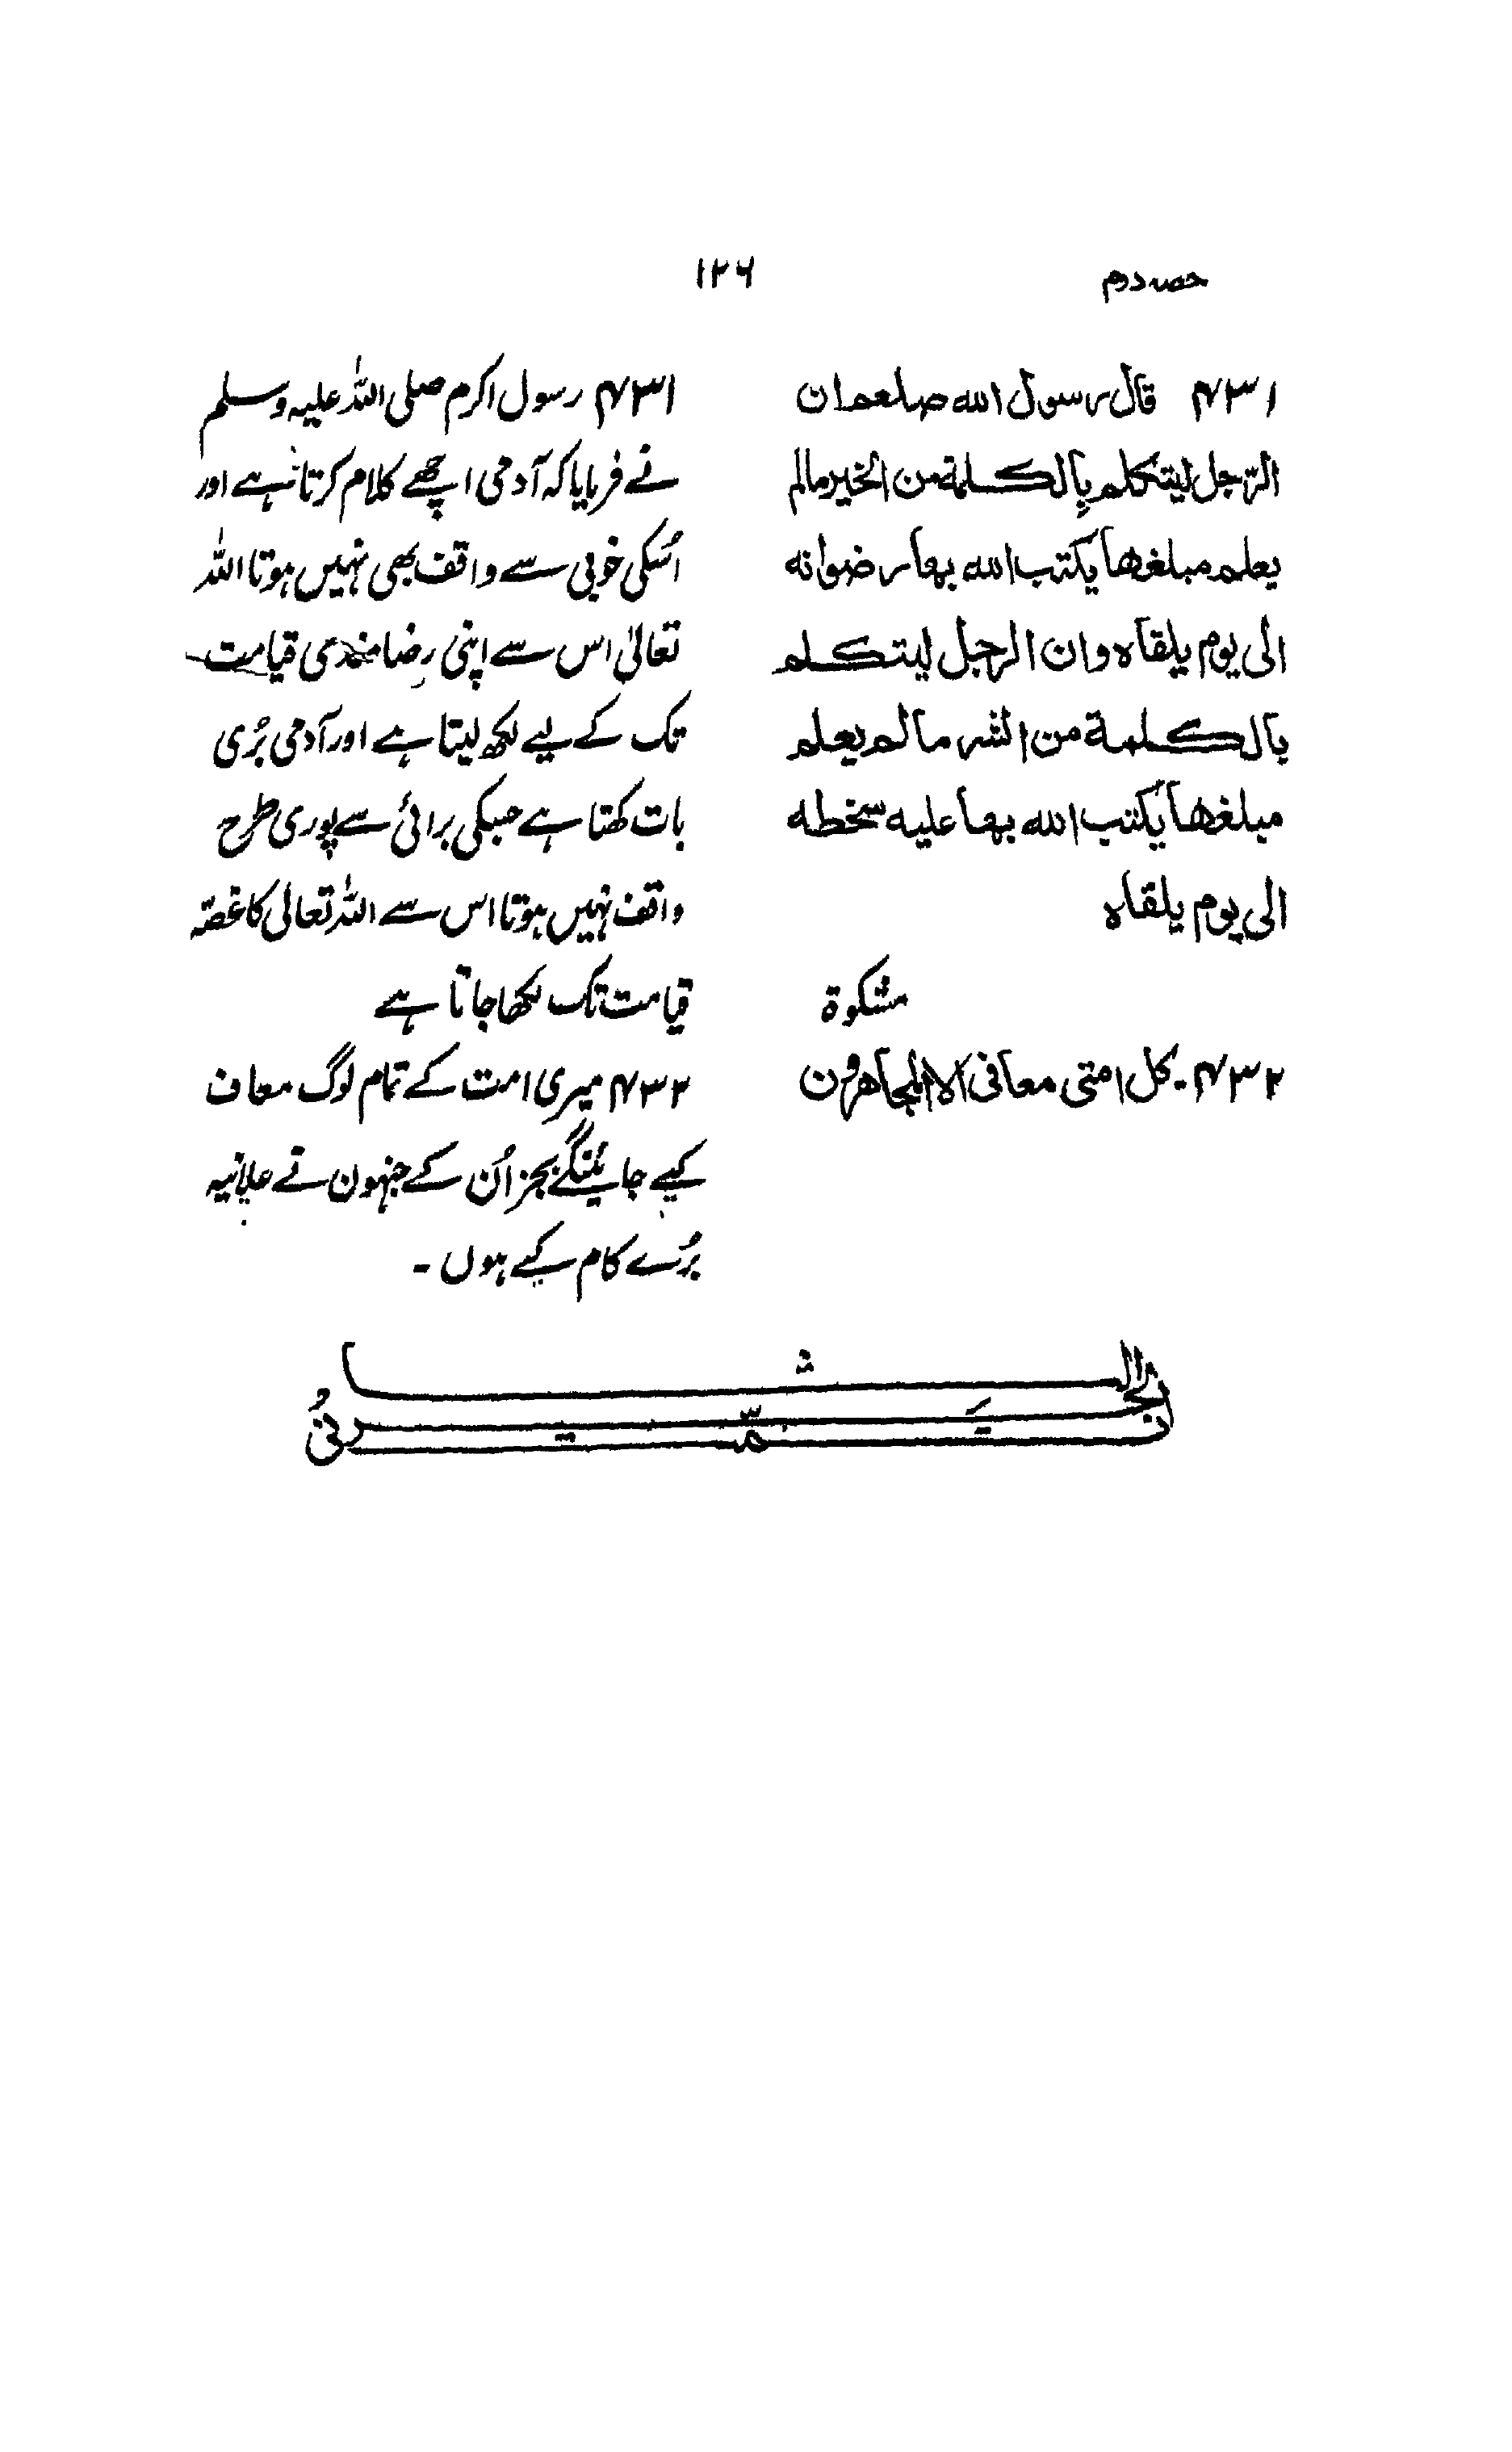 حصہ دوم
۱۲۶
۴۳۱ قال رسول الله صلعم ان
الرّجل ليتكلم بالكلمة من الخير مالم
يعلم مبلغها يكتب الله بها رضوانه
الى يوم يلقاه وان الرجل ليتكلم
بالكلمة من الشر مالم يعلم
مبلغها يكتب الله بها عليه سخطه
الى يوم يلقاه
مشكوة
۴۳۲۔ كل امتى معافى الا المجاهرون
۴۳۱ رسول اکرم صلی اللہ علیہ وسلم
نے فرمایا کہ آدمی اچھے کلام کرتا ہے اور
اُسکی خوبی سے واقف بھی نہیں ہوتا اللہ
تعالیٰ اس سے اپنی رضامندی قیامت
تک کے لیے لکھ لیتا ہے اور آدمی بُری
بات کہتا ہے جسکی برائی سے پوری طرح
واقف نہیں ہوتا اس سے اللہ تعالیٰ کا غصّہ
قیامت تک لکھا جاتا ہے
۴۳۲ میری امت کے تمام لوگ معاف
کیے جائینگے بجز اُن کے جنہون نے علانیہ
بُرے کام کیے ہوں ۔